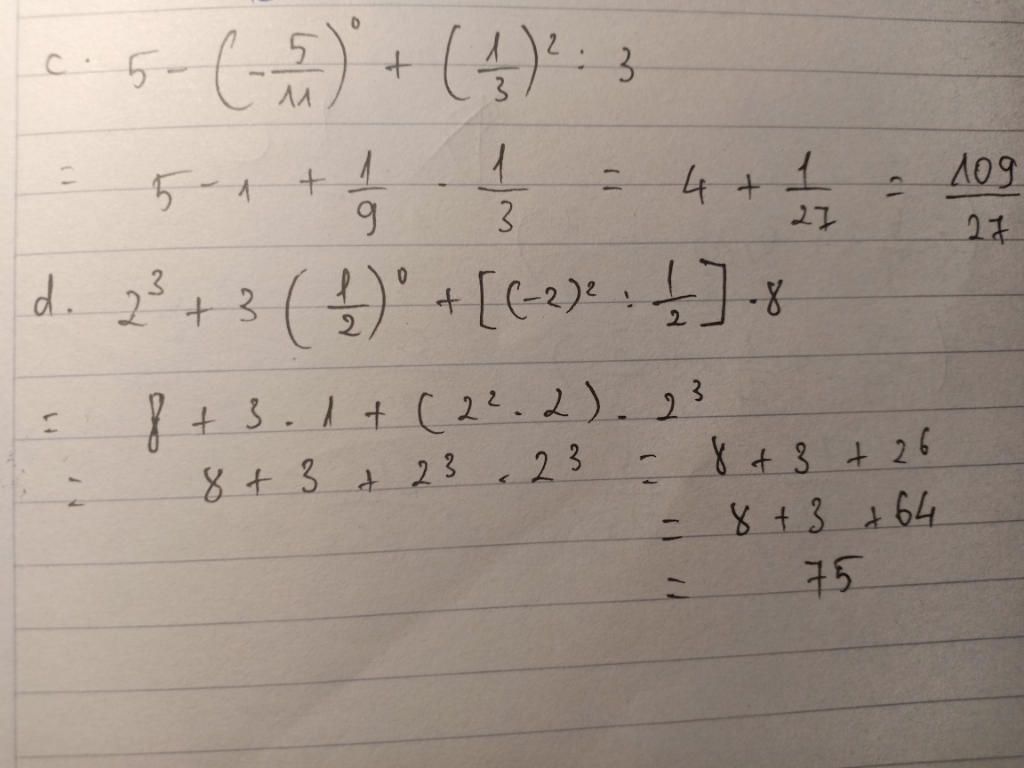 c. 5 - (-5/11)⁰ + (1/3)² : 3
= 5 - 1 + 1/9 · 1/3 = 4 + 1/27 = 109/27
d. 2³ + 3 (1/2)⁰ + [(-2)² : 1/2] · 8
= 8 + 3 . 1 + (2² . 2) . 2³
= 8 + 3 + 2³ . 2³ = 8 + 3 + 2⁶
= 8 + 3 + 64
= 75